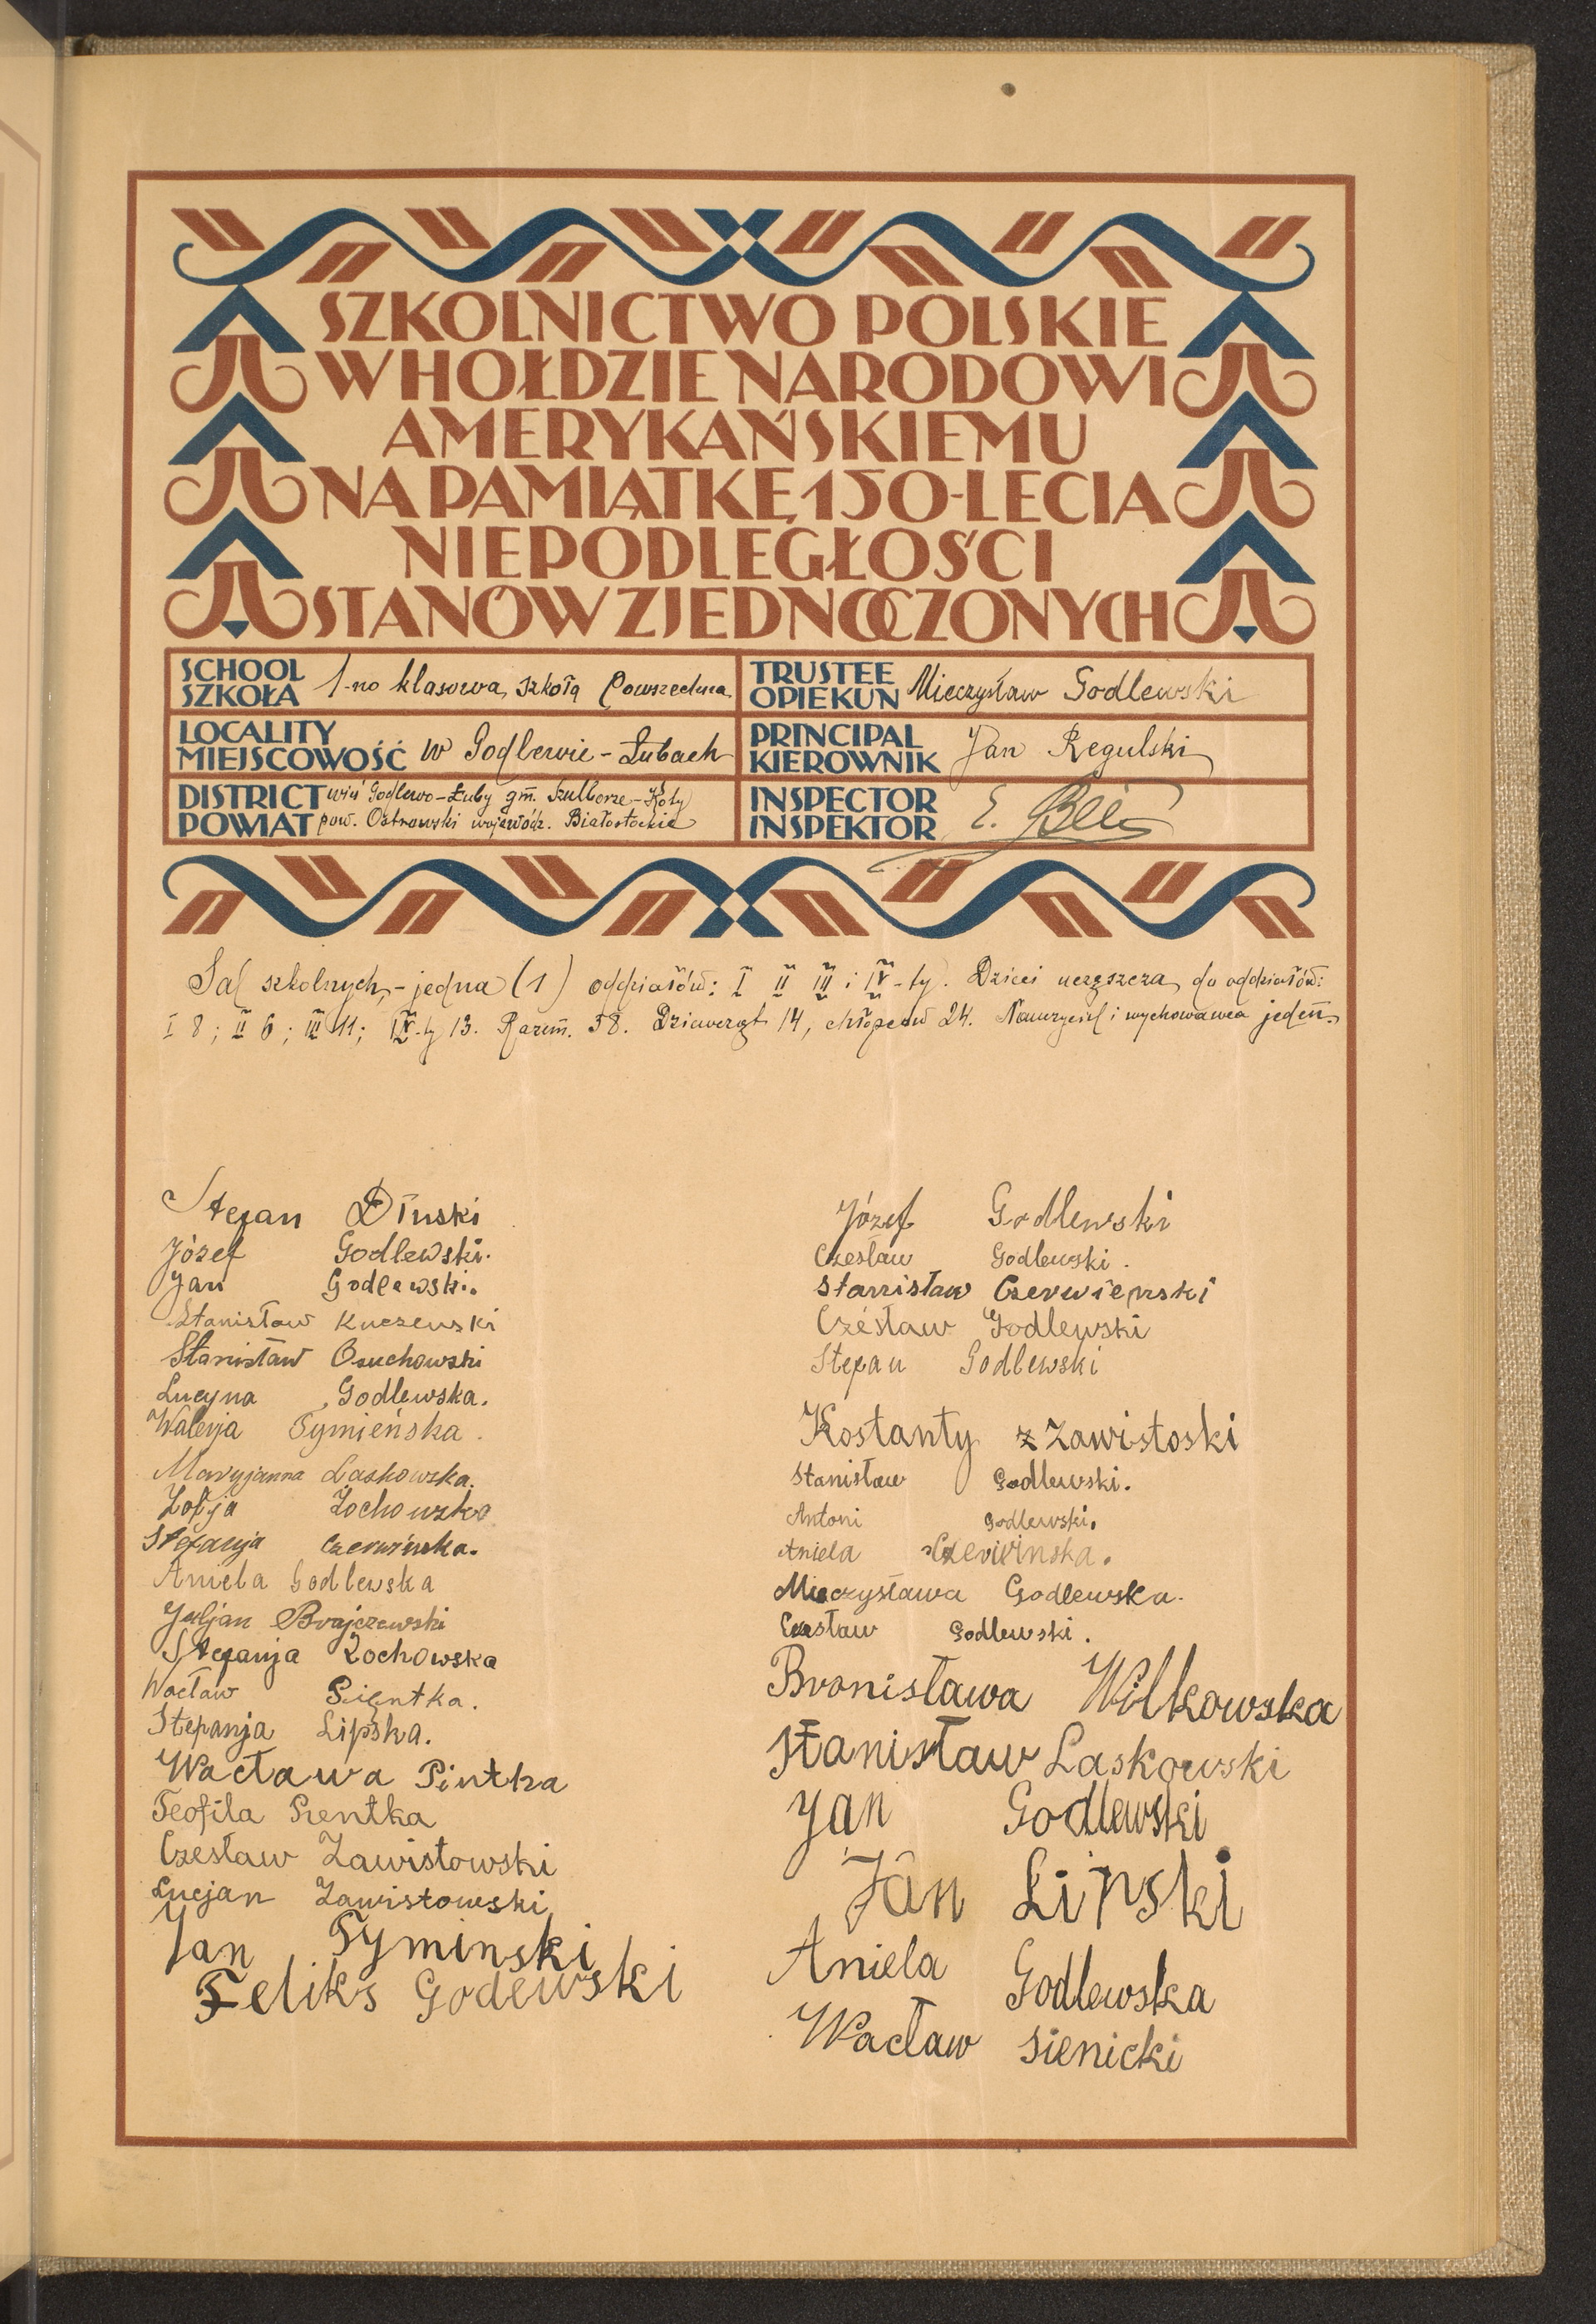 SZKOLNICTWO POLSKIE
W HOŁDZIE NARODOWI
AMERYKAŃSKIEMU
NA PAMIĄTKĘ 150-LECIA
NIEPODLEGŁOŚCI
STANÓW ZJEDNOCZONYCH
SCHOOL
SZKOŁA 1-no klasowa, szkoła Powszechna
TRUSTEE
OPIEKUN Mieczysław Godlewski
LOCALITY
MIEJSCOWOŚĆ w Godlewie - Łubach
PRINCIPAL
KIEROWNIK Jan Regulski
DISTRICT wieś Godlewo-Łuby gm. Szulborze-Koty
POWIAT pow. Ostrowski wojewódz. Białostockie
INSPECTOR
INSPEKTOR E.
Sal szkolnych, - jedna (1) oddziałów: I II III i IV-ty. Dzieci uczęszcza do oddziałów:
I 8; II 6; III 11; IV-ty 13. Razem. 38. Dziewcząt 14, chłopców 24. Nauczyciel i wychowawca jeden.
Stefan Dłuski
Józef Godlewski.
Jan Godlewski.
Stanisław Kuczewski
Stanisław Osuchowski
Lucyna Godlewska.
Walerja Tymieńska.
Maryjanna Laskowska.
Zofja Żochowska
Stefanja Czerwińska.
Aniela Godlewska
Juljan Brajczewski
Stefanja Żochowska
Wacław Pientka.
Stefanja Lipska.
Wacława Pintka
Teofila Pientka
Czesław Zawistowski
Lucjan Zawistowski
Jan Tyminski
Feliks Godewski
Józef Godlewski
Czesław Godlewski.
Stanisław Czerwieński
Czésław Godlewski
Stefan Godlewski
Kostanty z Zawistoski
Stanisław Godlewski.
Antoni Godlewski.
Aniela Czerwinska.
Mieczysława Godlewska.
Czesław Godlewski.
Bronisława Wilkowska
Stanisław Laskowski
Jan Godlewski
Jan Lipski
Aniela Godlewska
Wacław Sienicki